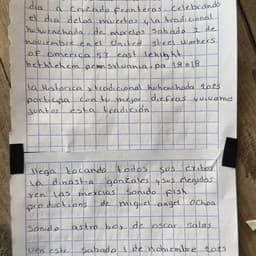 dia a cruzado fronteras celebrando
el dia delos muertos y la tradicional
huhuenchada de morelos sabado 1 de
noviembre en el United steel workers
of america 53 east lehight
bethlehem pennsilvania, pa 18018
la historica y tradicional huhuenchada 2025
participa con tu mejor disfras vivamos
juntos esta tradición
llega tocando todos sus exitos
la dinastia gonzales y sus megadas
ven las mexcias sonido pish
productions de miguel angel ochoa
sonido astro boy de oscar salas
ven este sabado 1 de nobiembre 2025